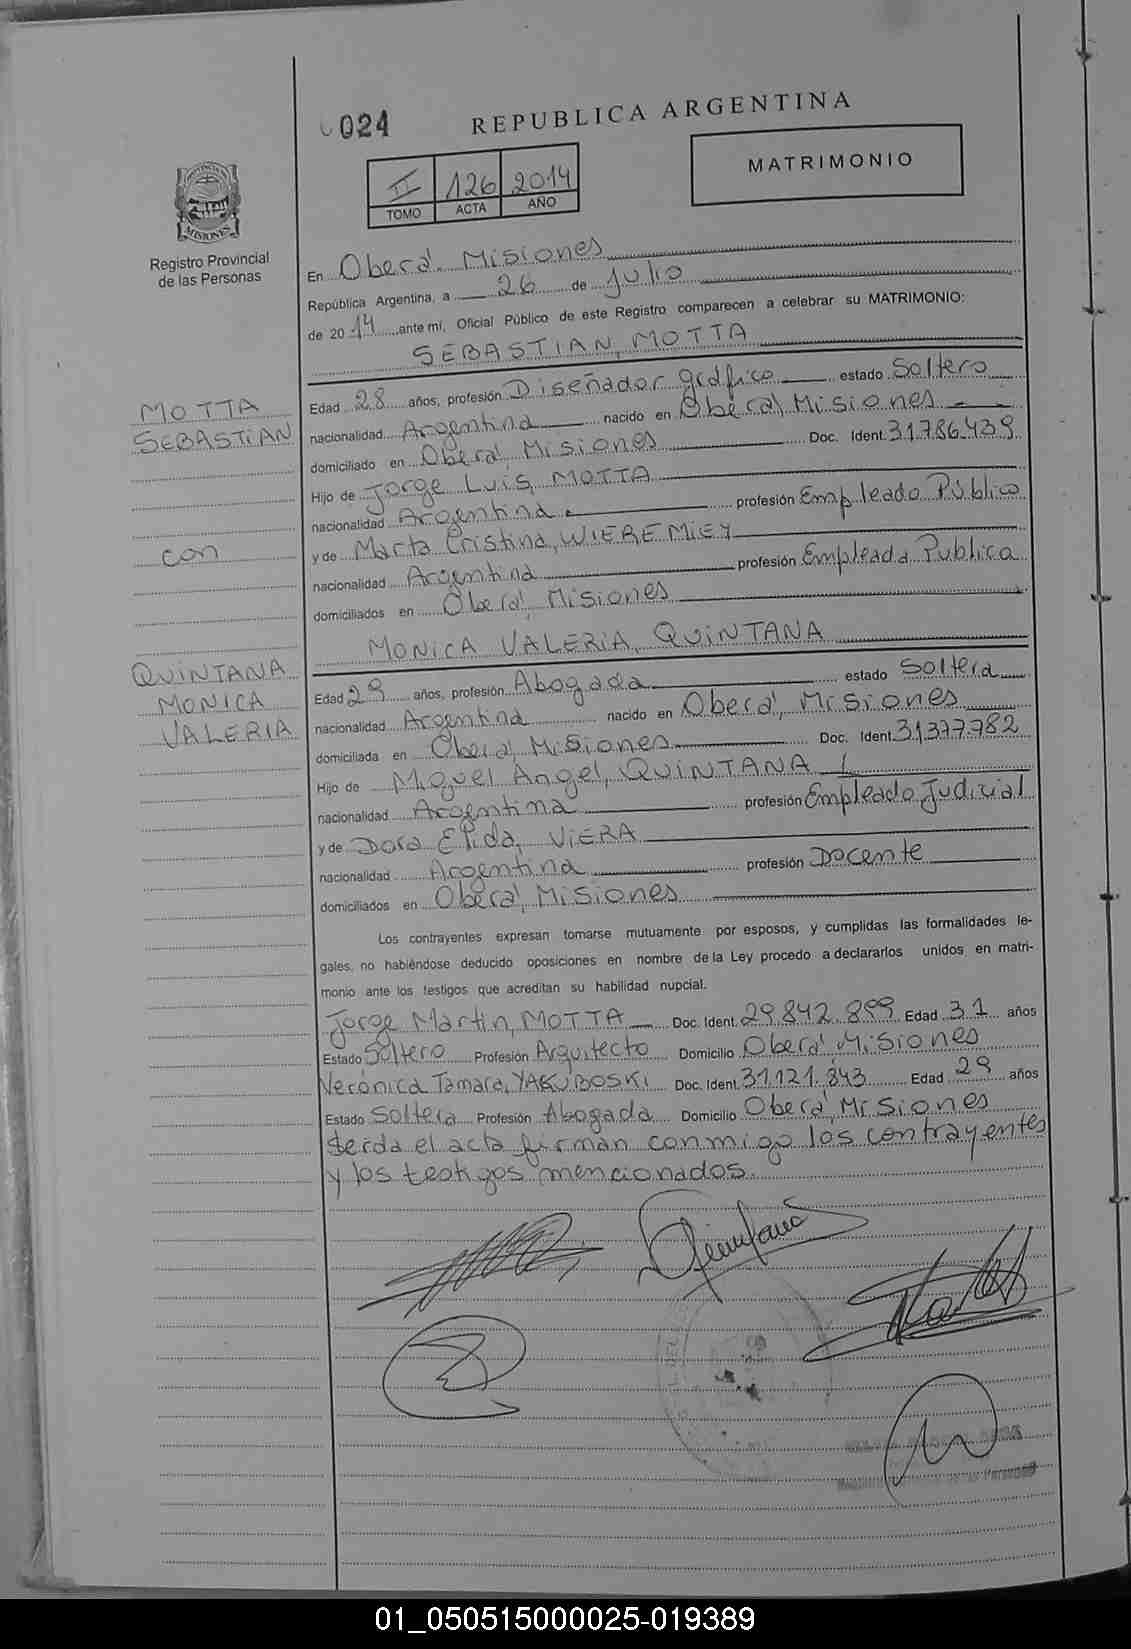 024
REPUBLICA ARGENTINA
MATRIMONIO
II 126 2014
TOMO ACTA AÑO
MISIONES
Registro Provincial
de las Personas
En Oberá. Misiones
República Argentina, a 26 de Julio
de 2014 ante mí, Oficial Público de este Registro comparecen a celebrar su MATRIMONIO:
SEBASTIAN, MOTTA
MOTTA
SEBASTIAN
con
QUINTANA
MONICA
VALERIA
Edad 28 años, profesión Diseñador gráfico estado Soltero
nacionalidad Argentina nacido en Oberá, Misiones
domiciliado en Oberá, Misiones Doc. Ident. 31.786.439
Hijo de Jorge Luis, MOTTA
nacionalidad Argentina profesión Empleado Público
y de Marta Cristina, WIEREMIEY
nacionalidad Argentina profesión Empleada Publica
domiciliados en Oberá, Misiones
MONICA VALERIA, QUINTANA
Edad 29 años, profesión Abogada estado Soltera
nacionalidad Argentina nacido en Oberá, Misiones
domiciliada en Oberá, Misiones Doc. Ident. 31.377.782
Hijo de Miguel Angel, QUINTANA
nacionalidad Argentina profesión Empleado Judicial
y de Dora Elida, VIERA
nacionalidad Argentina profesión Docente
domiciliados en Oberá, Misiones
Los contrayentes expresan tomarse mutuamente por esposos, y cumplidas las formalidades le-
gales, no habiéndose deducido oposiciones en nombre de la Ley procedo a declararlos unidos en matri-
monio ante los testigos que acreditan su habilidad nupcial.
Jorge Martin, MOTTA Doc. Ident. 29.842.899 Edad 31 años
Estado Soltero Profesión Arquitecto Domicilio Oberá, Misiones
Verónica Tamara, YAKUBOSKI Doc. Ident. 31.121.843 Edad 29 años
Estado Soltera Profesión Abogada Domicilio Oberá, Misiones
Leída el acta firman conmigo los contrayentes
y los testigos mencionados.
Quintana
01_050515000025-019389